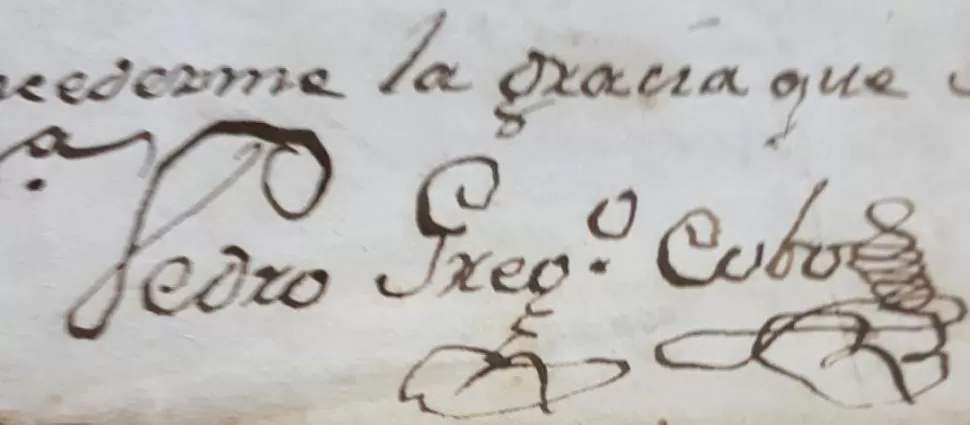 cederme la gracia que
a.
Pedro Greg.º Cubo